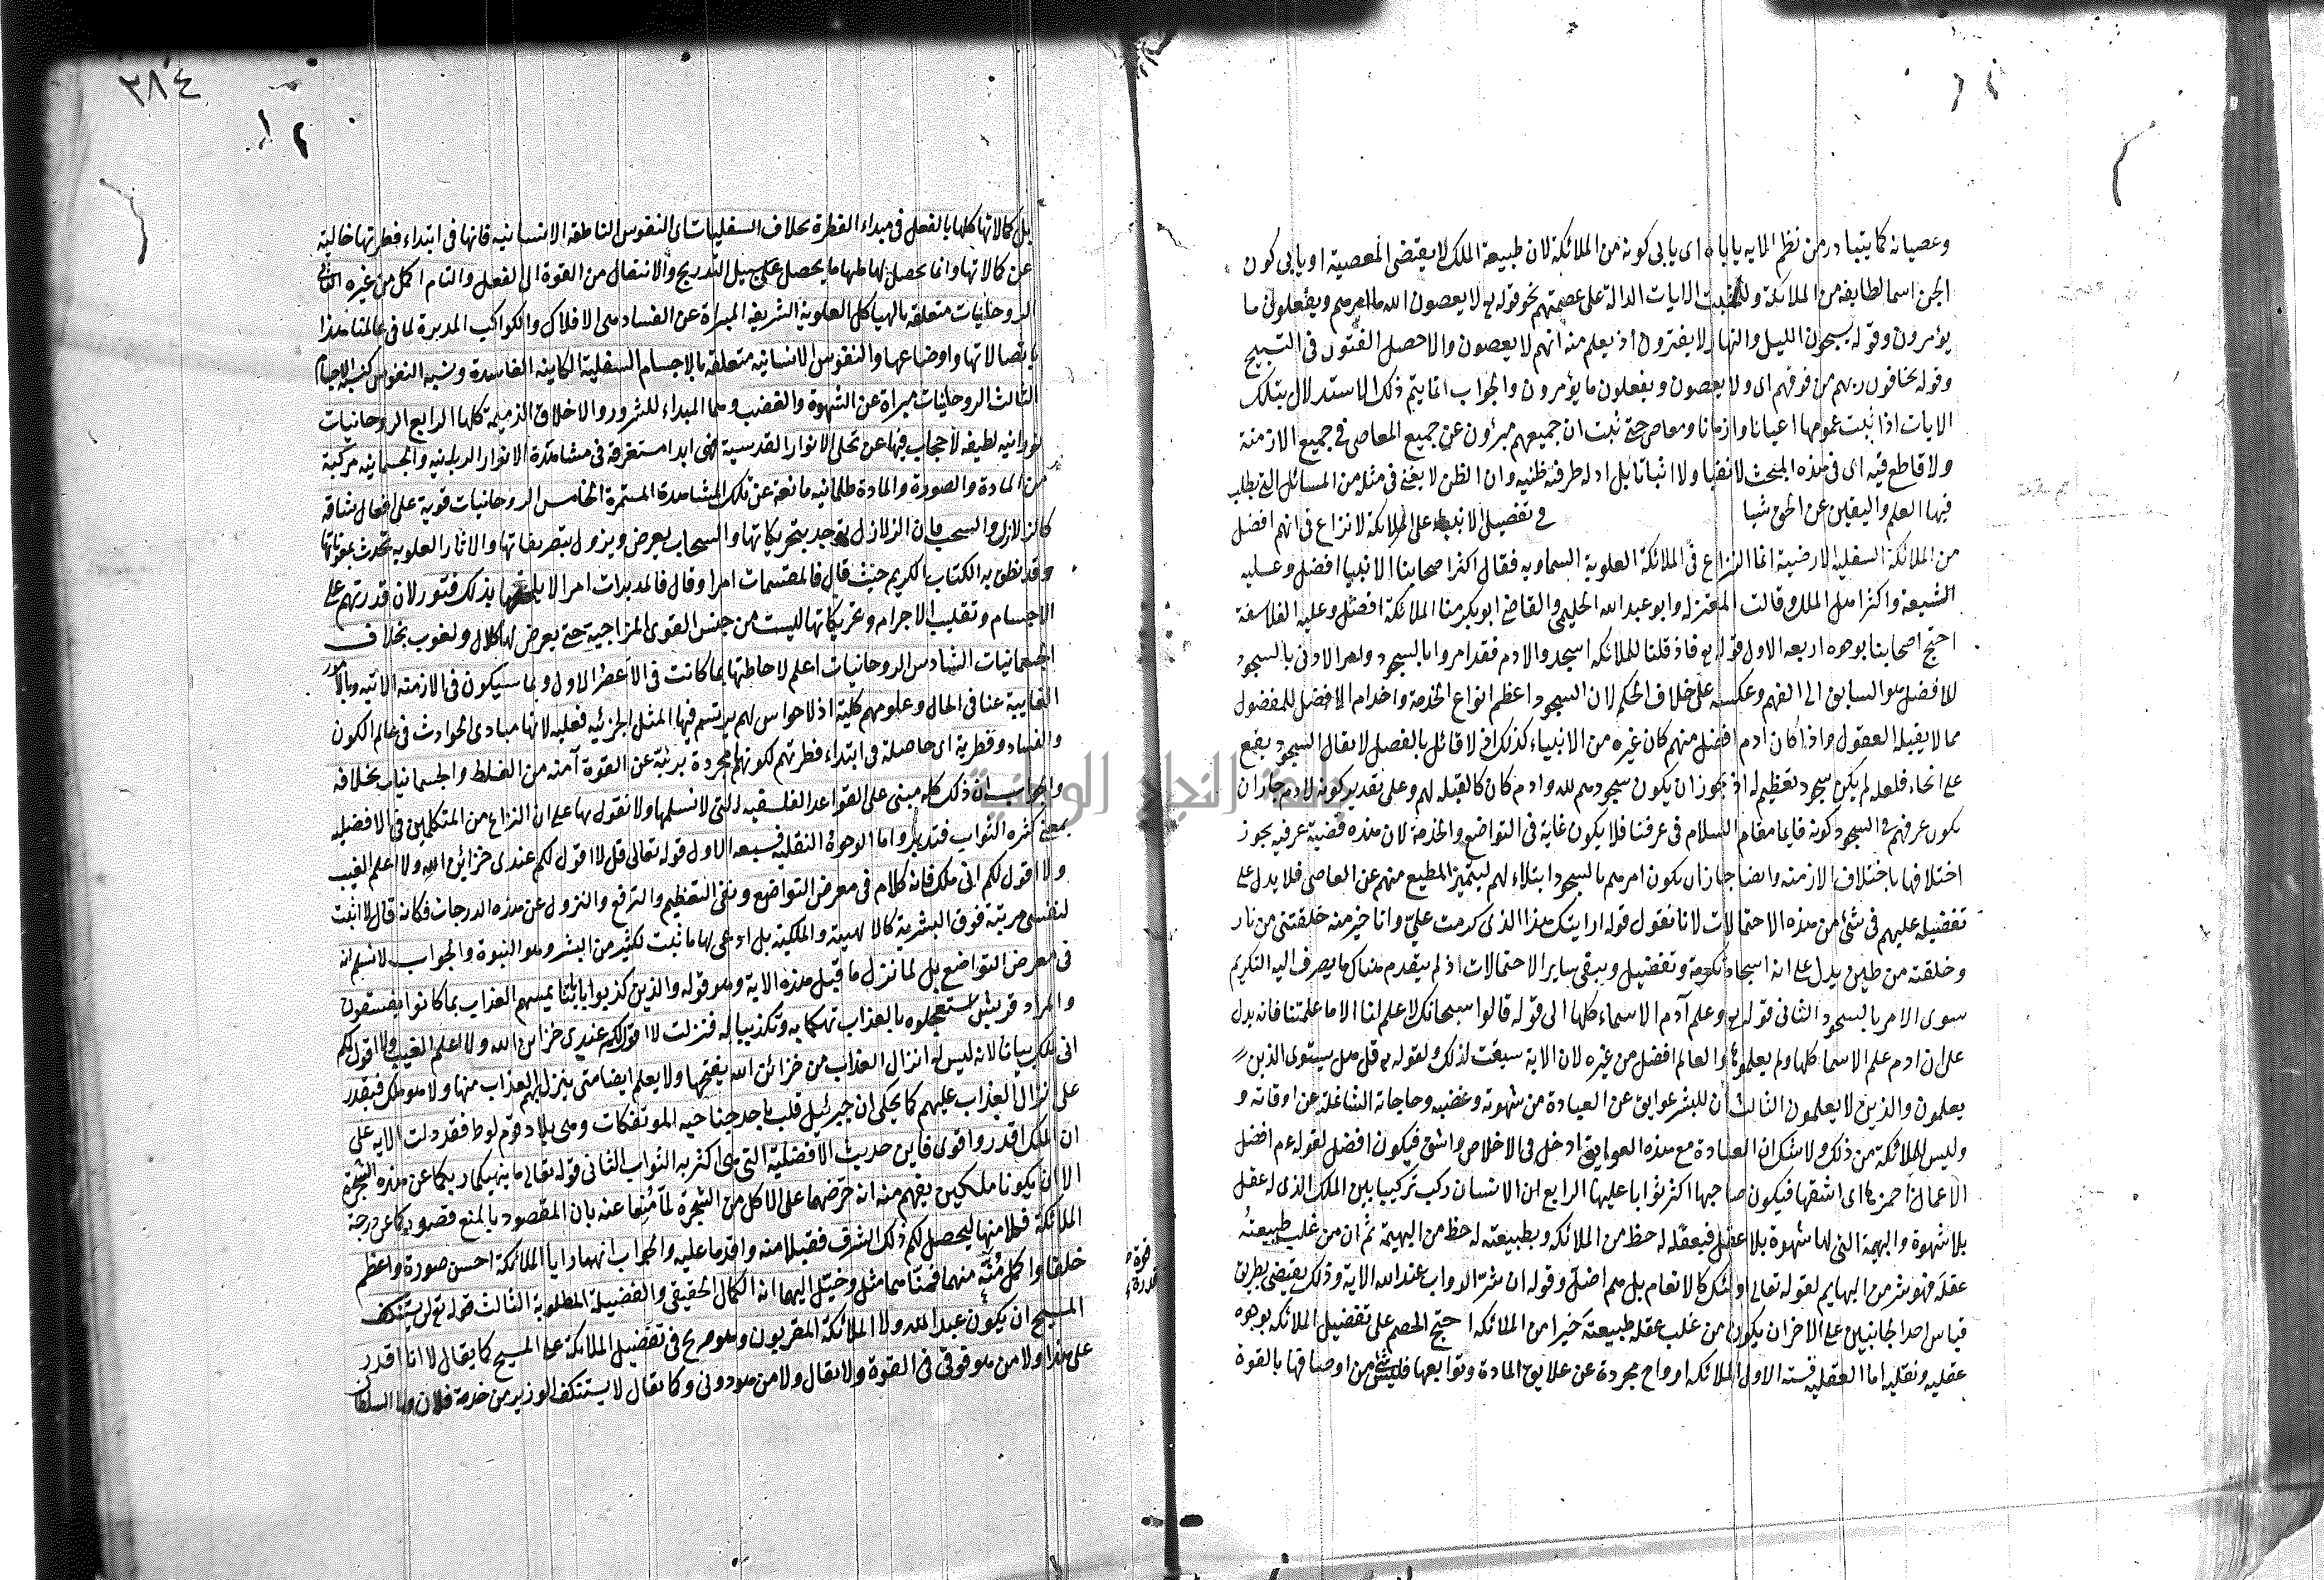 وعصيانه كما يتبادر من نظم الايه ياباه اى يابى كونه من الملائكة لان طبيعة الملك لا يقتضى المعصية او يابى كون
الجن اسما لطايفه من الملائكة ولنا الايات الدالة على عصمتهم نحو قوله تع لا يعصون الله ما امرهم ويفعلون ما
يؤمرون وقوله يسبحون الليل والنهار لا يفترون اذ يعلم منه انهم لا يعصون والا حصل الفتور في التسبيح
وقوله يخافون ربهم من فوقهم اى ولا يعصون ويفعلون ما يؤمرون والجواب انما يتم ذلك الاستدلال بتلك
الايات اذا ثبت عمومها اعيانا وازمانا ومعاصى حتى ثبت ان جميعهم مبرؤن عن جميع المعاصى في جميع الازمنة
ولا قاطع فيه اى في هذه المبحث لا نفيا ولا اثباتا بل ادله طرفيه ظنيه وان الظن لا يغنى في مثله من المسائل التى يطلب
فيها العلم واليقين عن الحق شيا في تفضيل الانبيا على الملائكة لا نزاع فى انهم افضل
من الملائكة السفليه الارضية انما النزاع في الملائكة العلوية السماويه فقال اكثر اصحابنا الانبيا افضل وعليه
الشيعة واكثر اهل الملل وقالت المعتزله وابو عبد الله الحليمى والقاضى ابو بكر منا الملائكة افضل وعليه الفلاسفة
احتج اصحابنا بوجوه اربعه الاول قوله تع فاذ قلنا للملائكه اسجدوا لادم فقد امروا بالسجود وامر الادنى بالسجود
للافضل هو السابق الى الفهم وعكسه على خلاف الحكم لان السجود اعظم انواع الخدمة واخدام الافضل للمفضول
مما لا يقبله العقول واذا كان ادم افضل منهم كان غيره من الانبياء كذلك اذ لا قائل بالفصل لا يقال السجود يقع
على انحاء فلعله لم يكن سجود تعظيم له اذ يجوز ان يكون سجودهم لله وادم كان كالقبله لهم وعلى تقدير كونه لادم جاز ان
يكون عرفهم فى السجود كونه قايما مقام السلام في عرفنا فلا يكون غاية في التواضع والخدمة لان هذه قضية عرفيه يجوز
اختلافها باختلاف الازمنه وايضا جاز ان يكون امرهم بالسجود ابتلاء لهم ليتميز المطيع منهم عن العاصى فلا يدل على
تفضيله عليهم في شئ من هذه الاحتمالات لانا نقول قوله ارايتك هذا الذى كرمت على وانا خير منه خلقتنى من نار
وخلقته من طين يدل على انه اسجاد تكرمة وتفضيل وينفى ساير الاحتمالات اذ لم يتقدم هناك ما يصرف اليه التكريم
سوى الامر بالسجود الثانى قوله تع وعلم آدم الاسماء كلها الى قوله قالوا سبحانك لا علم لنا الا ما علمتنا فانه يدل
على ان ادم علم الاسما كلها ولم يعلموها والعالم افضل من غيره لان الاية سيقت لذلك ولقوله تع قل هل يستوى الذين
يعلمون والذين لا يعلمون الثالث ان للبشر عوايق عن العبادة من شهوته وغضبه وحاجاته الشاغلة عن اوقاته و
وليس للملائكة من ذلك ولا شك ان العبادة مع هذه العوايق ادخل فى الاخلاص واشق فيكون افضل لقوله عم افضل
الاعمال احمزها اى اشقها فيكون صاحبها اكثر ثوابا عليها الرابع ان الانسان ركب تركيبا بين الملك الذى له عقل
بلا شهوة والبهيمة التى لها شهوة بلا عقل فبعقله له حظ من الملائكه وبطبيعته له حظ من البهيمة ثم ان من غلب طبيعته
عقله فهو شر من البهايم لقوله تعالى اولئك كالانعام بل هم اضل وقوله ان شر الدواب عند الله الاية وذلك يقتضى بطريق
قياس احد الجانبين على الاخر ان يكون من غلب عقله طبيعته خيرا من الملائكه احتج الخصم على تفضيل الملائكه بوجوه
عقليه ونقليه اما العقليه فسته الاول الملائكه ارواح مجردة عن علايق المادة وتوابعها فليس شئ من اوصافها بالقوة
٣٨٤
بل كمالاتها كلها بالفعل فى مبداء الفطرة بخلاف السفليات اى النفوس الناطقه الانسانيه فانها فى ابتداء فطرتها خالية
عن كمالاتها وانما يحصل لها منها ما يحصل على سبيل التدريج والانتقال من القوة الى الفعل والتام اكمل من غيره الثانى
الروحانيات متعلقه بالهياكل العلوية الشريفة المبراة عن الفساد وهى الافلاك والكواكب المدبرة لما فى عالمنا هذا
باتصالاتها واوضاعها والنفوس الانسانيه متعلقه بالاجسام السفلية الكاينه الفاسدة ونسبه النفوس كنسبة الاجسام
الثالث الروحانيات مبراة عن الشهوة والغضب وهما المبداء للشرور والاخلاق الذميمة كلها الرابع الروحانيات
نورانيه لطيفه لا حجاب فيها عن تجلى الانوار القدسية فهى ابدا مستغرقة فى مشاهدة الانوار الربانيه والجسمانيه مركبة
من المادة والصورة والمادة ظلمانيه مانعة عن تلك المشاهدة المستمرة الخامس الروحانيات قوية على افعال شاقه
كالزلازل والسحب فان الزلازل توجد بتحريكاتها والسحاب يعرض ويزول بتصريفاتها والاثار العلويه تحدث بمعوناتها
وقد نطق به الكتاب الكريم حيث قال فالمقسمات امرا وقال فالمدبرات امرا لا يلحقها بذلك فتور لان قدرتهم على
الاجسام وتقليب الاجرام وتحريكاتها ليست من جنس القوى المزاجية حتى يعرض لها كلال ولغوب بخلاف
الجسمانيات السادس الروحانيات اعلم لاحاطتها بما كانت فى الاعصر الاول وبما سيكون فى الازمنه الاتيه وبالامور
الغايبة عنا فى الحال وعلومهم كلية اذ لا حواس لهم يرتسم فيها المثل الجزئيه فعليه لانها مبادى الحوادث فى عالم الكون
والفساد وفطرية اى حاصلة فى ابتداء فطرتهم لكونهم مجردة بريئة عن القوة آمنه من الغلط والجسمانيات بخلافه
والجواب ان ذلك كله مبنى على القواعد الفلسفيه التى لا نسلمها ولا نقول بها على ان النزاع من المتكلمين فى الافضليه
بمعنى كثره الثواب فتدبر واما الوجوه النقليه فسبعه الاول قوله تعالى قل لا اقول لكم عندى خزائن الله ولا اعلم الغيب
ولا اقول لكم انى ملك فانه كلام فى معرض التواضع ونفى التعظيم والترفع والنزول عن هذه الدرجات فكانه قال لا اثبت
لنفسى مرتبة فوق البشرية كالالهية والملكية بل ادعى لها ما ثبت لكثير من البشر وهو النبوة والجواب لا نسلم انه
فى معرض التواضع بل لما نزل ما قبل هذه الاية وهو قوله والذين كذبوا باياتنا يمسهم العذاب بما كانوا يفسقون
والمراد قريش استعجلوه بالعذاب تهكما به وتكذيبا له فنزلت لا اقول لكم عندى خزائن الله ولا اعلم الغيب ولا اقول لكم
انى ملك بيانا لانه ليس له انزال العذاب من خزائن الله يفتحها ولا يعلم ايضا متى ينزل بهم العذاب منها ولا هو ملك فيقدر
على انزال العذاب عليهم كما يحكى ان جبرئيل قلب باحد جناحيه الموتفكات وهى بلاد قوم لوط فقد دلت الايه على
ان الملك اقدر واقوى فاين حديث الافضلية التى هى اكثريه الثواب الثانى قوله تعالى ما نهيكما ربكما عن هذه الشجرة
الا ان تكونا ملكين يفهم منه انه حرضهما على الاكل من الشجرة لما منعا عنه بان المقصود بالمنع قصوركما عن درجة
الملائكة فكلا منها ليحصل لكم ذلك الشرف فقبلا منه واقدما عليه والجواب انهما رايا الملائكة احسن صورة واعظم
خلقا واكمل قوة منهما فمناهما مثل وخيل اليهما انه الكمال الحقيقى والفضيلة المطلوبة الثالث قوله تع لن يستنكف
المسيح ان يكون عبدا لله ولا الملائكة المقربون وهو صريح فى تفضيل الملائكة على المسيح كما يقال لا انا اقدر
على هذا ولا من هو فوقى فى القوة ولا يقال ولا من هو دونى وكما يقال لا يستنكف الوزير من خدمة فلان ولا السلطان